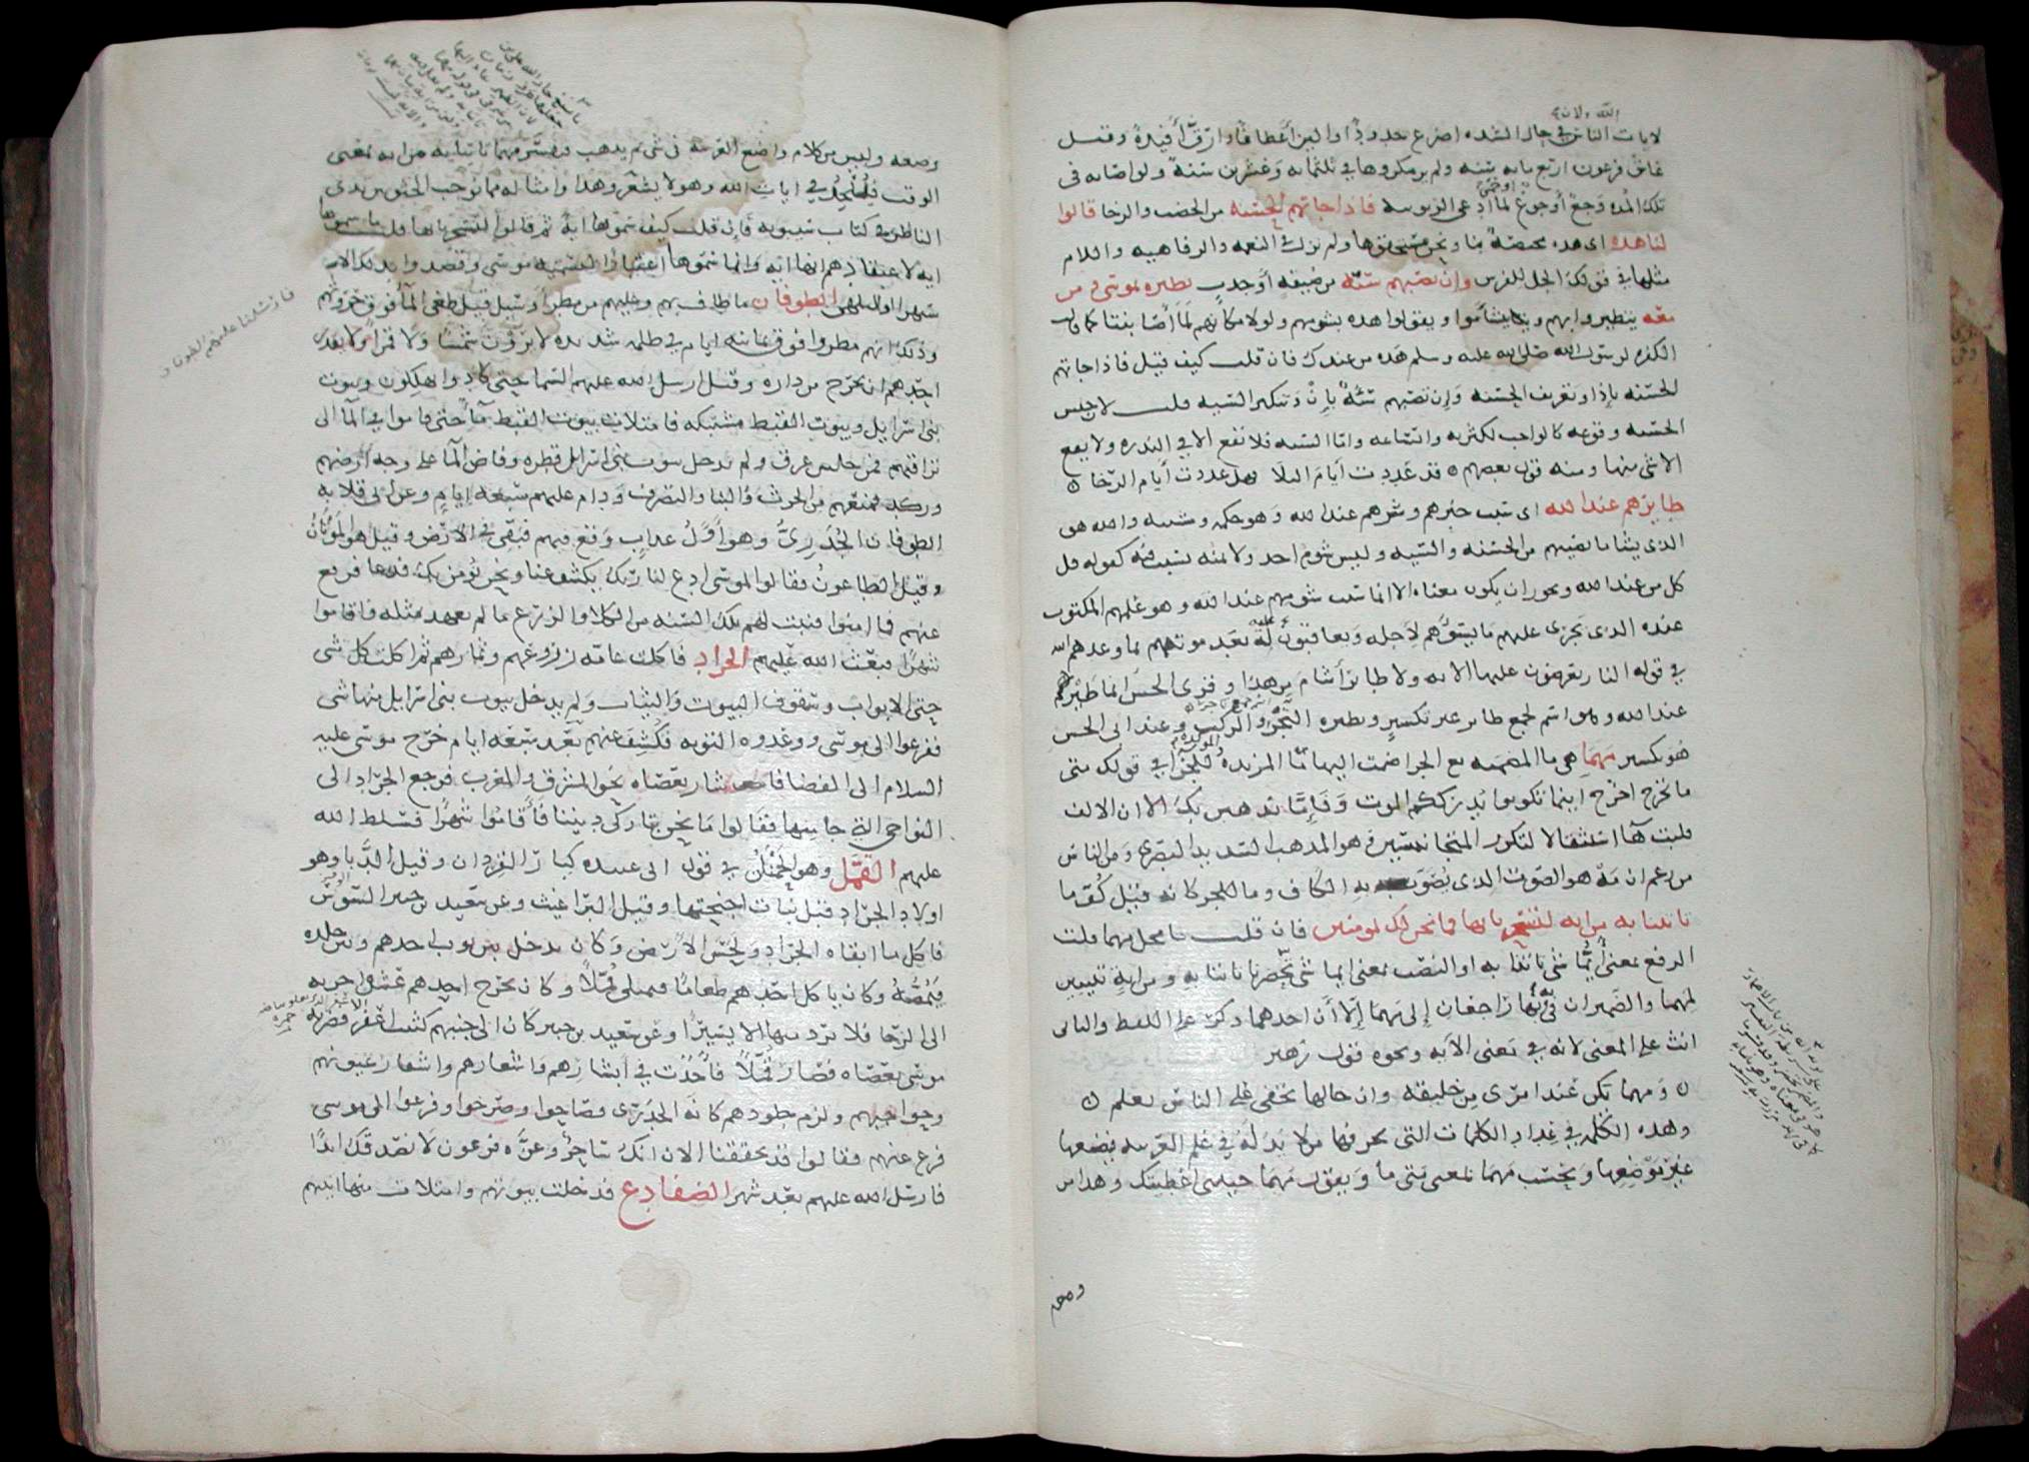 الله ولان
لايات الناس في حال الشده اضرع خدودًا والين أعطافًا وارقّ أفيدةً وقيل
عاش فرعون اربع مايه سنه ولم ير مكروها في ثلثمايه وعشرين سنةً ولو اصابه في
تلك المده وجع أو جوع لما ادعى الربوبيه فاذا جاتهم الحسنه من الخصب والرخا قالوا
لنا هذه اى هذه مختصة بنا ونحن مستحقوها ولم نزل في النعمه والرفاهيه واللام
مثلها في قولك الجل للفرس وان تصبهم سيّه من ضيقه أو جدب يطيروا بموسى ومن
معه يتطيروا بهم ويتشأموا ويقولوا هذه بشومهم ولولا مكانهم لما أصابتنا كما قالت
الكفره لرسول الله صلى الله عليه وسلم هذه من عندك فان قلت كيف قيل فاذا جاتهم
الحسنه باذا وتعريف الحسنه وان تصبهم سيّةٌ بإنْ وتنكير السيه قلت لان جنس
الحسنه وقوعه كالواجب لكثرته واتساعه واما السيه فلا تقع الا في الندره ولا يقع
الا شى منها ومنه قول بعضهم ٥ قد عددت أيام البلا فهل عددت أيام الرخا ٥
طايرهم عند الله اى سبب خيرهم وشرهم عند الله وهو حكمه ومشيته والله هو
الذي يشا ما يصيبهم من الحسنه والسيه وليس شوم احد ولا يمنه بسبب فيه كقوله قل
كل من عند الله ويجوز ان يكون معناه الا انما سبب شومهم عند الله وهو عملهم المكتوب
عنده الذي يجرى عليهم ما يسوّهم لأجله ويعاقبون له بعد موتهم بما وعدهم الله
في قوله النار يعرضون عليها الايه ولا طاير أشام من هذا وقرى الحسن انما طيركم
عند الله وهو اسم لجمع طاير غير تكسير ونظيره التجر والركب وعند ابى الحسن
هو تكسير مهما هى ما المضمنه مع الجزا ضمت اليها ما المزيده للجزا في قولك متى
ما تخرج اخرج اينما تكونوا يدرككم الموت وفإمّا نذهبن بك الا ان الالف
قلبت هآ استثقالا لتكرير المتجانسين وهو المذهب السديد البصرى ومن الناس
من زعم ان مه هو الصوت الذي يصوت به الكاف وما للجزا كانه قيل كف ما
تاتنا به من ايه لتسحرنا بها فما نحن لك بمومنين فان قلت ما محل مهما قلت
الرفع بمعنى أيما شى تاتنا به او النصب بمعنى ايما شى تحضرنا تاتنا به ومن ايةٍ تبيين
لمهما والضميران في به وبها راجعان إلى مهما إلا أن احدهما ذكر على اللفظ والثانى
انث على المعنى لانه في معنى الايه ونحوه قول زهير
٥ ومهما تكن عند امرى من خليقه وان خالها تخفى على الناس تعلم ٥
وهذه الكلمه في عداد الكلمات التى يحرفها من لا يد له في علم العربيه فيضعها
غير موضعها ويحسب مهما بمعنى متى ما ويقول مهما جيتنى اعطيتك وهذا من
وضعه
وضعه وليس من كلام واضع العربيه في شى ثم يذهب فيفسر مهما تاتنا به من ايه بمعنى
الوقت فيُلحِدُ في ايات الله وهو لا يشعر وهذا وامثاله مما توجب الجثو بين يدى
الناظر في كتاب سيبويه فإن قلت كيف سموها ايةً ثم قالوا لتسحرنا بها قلت ما سموها
ايه لاعتقادهم انها ايه وانما سموها اعتبارًا لتسميه موسى وقصدوا بذلك الاستـ
الطوفان ما طاف بهم وغلبهم من مطر أو سيل قيل طغى المآ فوق حروثهم
وذلك انهم مطروا ثمانيه ايام في ظلمه شديده لا يرون شمسًا ولا قمرًا ولا يقدر
احدهم ان يخرج من داره وقيل ارسل الله عليهم السما حتى كادوا يهلكون وبيوت
بنى اسرايل وبيوت القبط مشتبكه فامتلات بيوت القبط مآً حتى قاموا في المآ الى
تراقيهم فمن جلس غرق ولم تدخل بيوت بنى اسرايل قطره وفاض المآ على وجه أرضهم
وركد فمنعهم من الحرث والبنا والتصرف ودام عليهم سبعه ايامٍ وعن ابى قلابه
الطوفان الجُدَرِىُّ وهو أوّلُ عذابٍ وقع فيهم فبقى في الأرض وقيل هو الموتان
وقيل الطاعونُ فقالوا لموسى ادع لنا ربك يكشف عنا ونحن نومن بك فدعا فرفع
عنهم فما امنوا فنبت لهم تلك السنه من الكلا والزرع ما لم يعهد مثله فاقاموا
شهرًا فبعث الله عليهم الجراد فاكلت عامّه زروعهم وثمارهم ثم اكلت كل شى
حتى الابواب وسقوف البيوت والثياب ولم يدخل بيوت بنى اسرايل منها شى
ففزعوا الى موسى ووعدوه التوبه فكُشِف عنهم بعد سبعه ايام خرج موسى عليه
السلام الى الفضا فاشار بعصاه نحو المشرق والمغرب فرجع الجراد الى
النواحى التى جا منها فقالوا ما نحن بتاركى ديننا فأقاموا شهرًا فسلط الله
عليهم القُمَّل وهو الحمنان في قول ابى عبيده كبار القردان وقيل الدَّبا وهو
اولاد الجراد قبل نبات اجنحتها وقيل البراغيث وعن سعيد بن جبير السوس
فاكل ما ابقاه الجراد ولحس الأرض وكان يدخل بين ثوب احدهم وبين جلده
فيَمُصّه وكان ياكل احدهم طعامًا فيمتلى قُمّلاً وكان يخرج احدهم عشره اجربه
الى الرحا فلا يرد منها الا يسيرًا وعن سعيد بن جبير كان الى جنبهم كثيب اعفر فضربه
موسى بعصاه فصار قمّلاً فأخذت في أبشارهم واشعارهم واشفار عيونهم
وحواجبهم ولزم جلودهم كانه الجدرى فصاحوا وصرخوا وفزعوا الى موسى
فرفع عنهم فقالوا قد تحققنا الان انك ساحرٌ وعزّه فرعون لا نصدقك ابدًا
فارسل الله عليهم بعد شهر الضفادع فدخلت بيوتهم وامتلات منها انيتهم
فارسلنا عليهم الطوفان